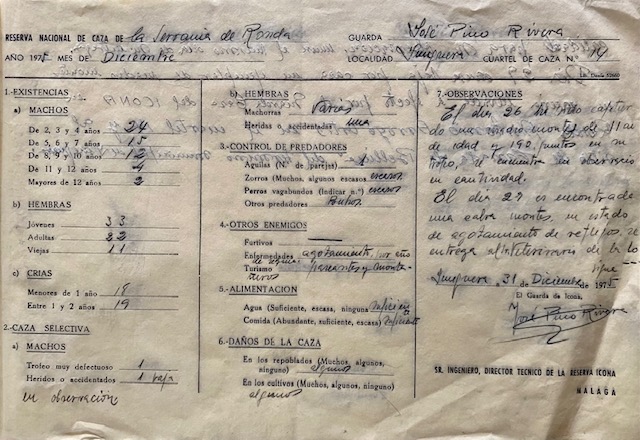 RESERVA NACIONAL DE CAZA DE la Serrania de Ronda
AÑO 197 MES DE Diciembre
GUARDA José Pino Rivera
LOCALIDAD Yunquera CUARTEL DE CAZA N.º 14
1.-EXISTENCIAS
a) MACHOS
De 2, 3 y 4 años 24
De 5, 6 y 7 años 15
De 8, 9 y 10 años 12
De 11 y 12 años 4
Mayores de 12 años 2
b) HEMBRAS
Jóvenes 33
Adultas 22
Viejas 11
c) CRIAS
Menores de 1 año 18
Entre 1 y 2 años 19
2.-CAZA SELECTIVA
a) MACHOS
Trofeo muy defectuoso 1
Heridos o accidentados 1
en observación
b) HEMBRAS
Machorras Varias
Heridas o accidentadas una
3.-CONTROL DE PREDADORES
Aguilas (N.º de parejas) 1
Zorros (Muchos, algunos escasos) escasos
Perros vagabundos (Indicar n.º) escasos
Otros predadores Buhos
4.-OTROS ENEMIGOS
Furtivos
Enfermedades agotamiento, por año
de sequia
Turismo paseantes y monta-
ñeros
5.-ALIMENTACION
Agua (Suficiente, escasa, ninguna) suficiente
Comida (Abundante, suficiente, escasa) suficiente
6.-DAÑOS DE LA CAZA
En los repoblados (Muchos, algunos,
ninguno) algunos
En los cultivos (Muchos, algunos, ninguno)
algunos
7.-OBSERVACIONES
El dia 26 ha sido captura
do una macho montes de 11 años
de idad y 190 puntos en su
trofeo, se encuentra en observacio
en cantividad.
El dia 27 es encontrada
una cabra montes, en estado
de agotamiento de reflejos, se
entrega al veterinario de
Yunquera 31 Diciembre de 197
El Guarda de Icona,
José Pino Rivera
SR. INGENIERO, DIRECTOR TECNICO DE LA RESERVA ICONA
MALAGA